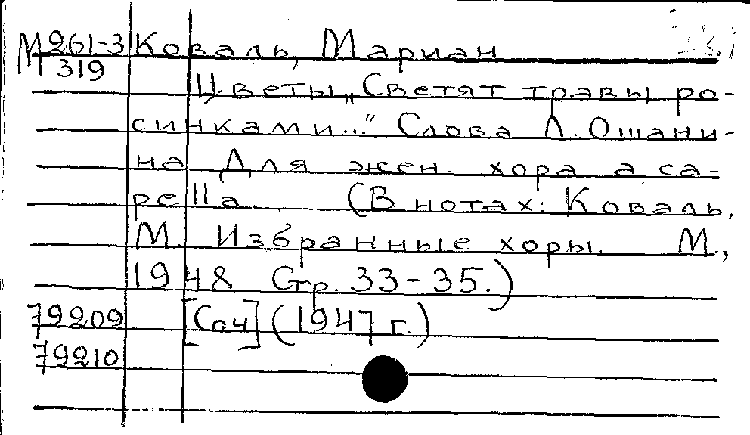 М 261-3 Коваль, Мариан
319
Цветы „Светят травы ро-
синками..." Слова Л. Ошани-
на Для жен. хора a ca-
pella. (В нотах: Коваль,
М. Избранные хоры. М.,
1948 Стр. 33-35.)
79209 [Соч] (1947 г.)
79210